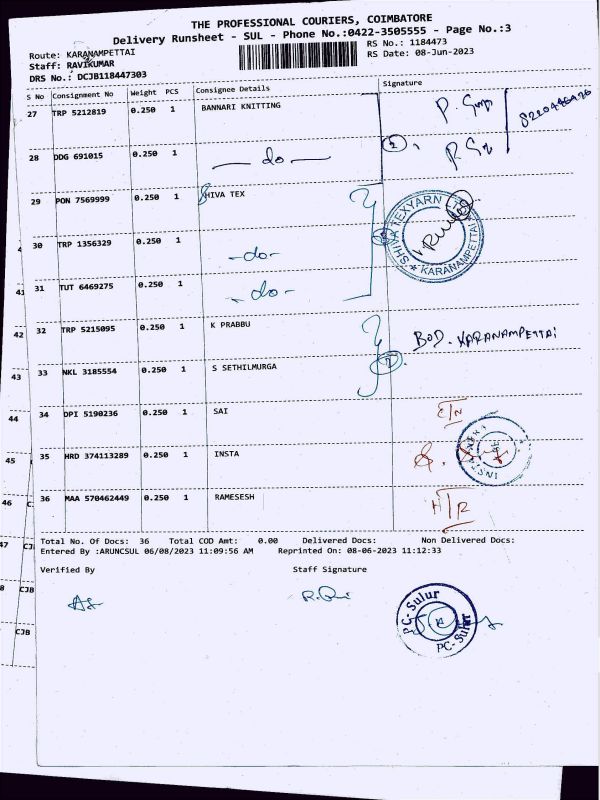 THE PROFESSIONAL COURIERS, COIMBATORE
Delivery Runsheet - SUL - Phone No.:0422-3505555 - Page No.:3
Route: KARANAMPETTAI
RS No.: 1184473
Staff: RAVIKUMAR
RS Date: 08-Jun-2023
DRS No.: DCJB118447303
S No Consignment No Weight PCS Consignee Details Signature
27 TRP 5212819 0.250 1 BANNARI KNITTING
28 DDG 691015 0.250 1 -do-
29 PON 7569999 0.250 1 SHIVA TEX
SHIVA TEXYARN LTD * KARANAMPETTAI
30 TRP 1356329 0.250 1 -do-
31 TUT 6469275 0.250 1 -do-
32 TRP 5215095 0.250 1 K PRABBU BOD. KARANAMPETTAI
33 NKL 3185554 0.250 1 S SETHILMURGA
34 DPI 5190236 0.250 1 SAI
35 HRD 374113289 0.250 1 INSTA
36 MAA 570462449 0.250 1 RAMESESH
Total No. Of Docs: 36 Total COD Amt: 0.00 Delivered Docs: Non Delivered Docs:
Entered By :ARUNCSUL 06/08/2023 11:09:56 AM Reprinted On: 08-06-2023 11:12:33
Verified By Staff Signature
PC-Sulur
PC-Sulur
41
42
43
44
45
46
47
CJB